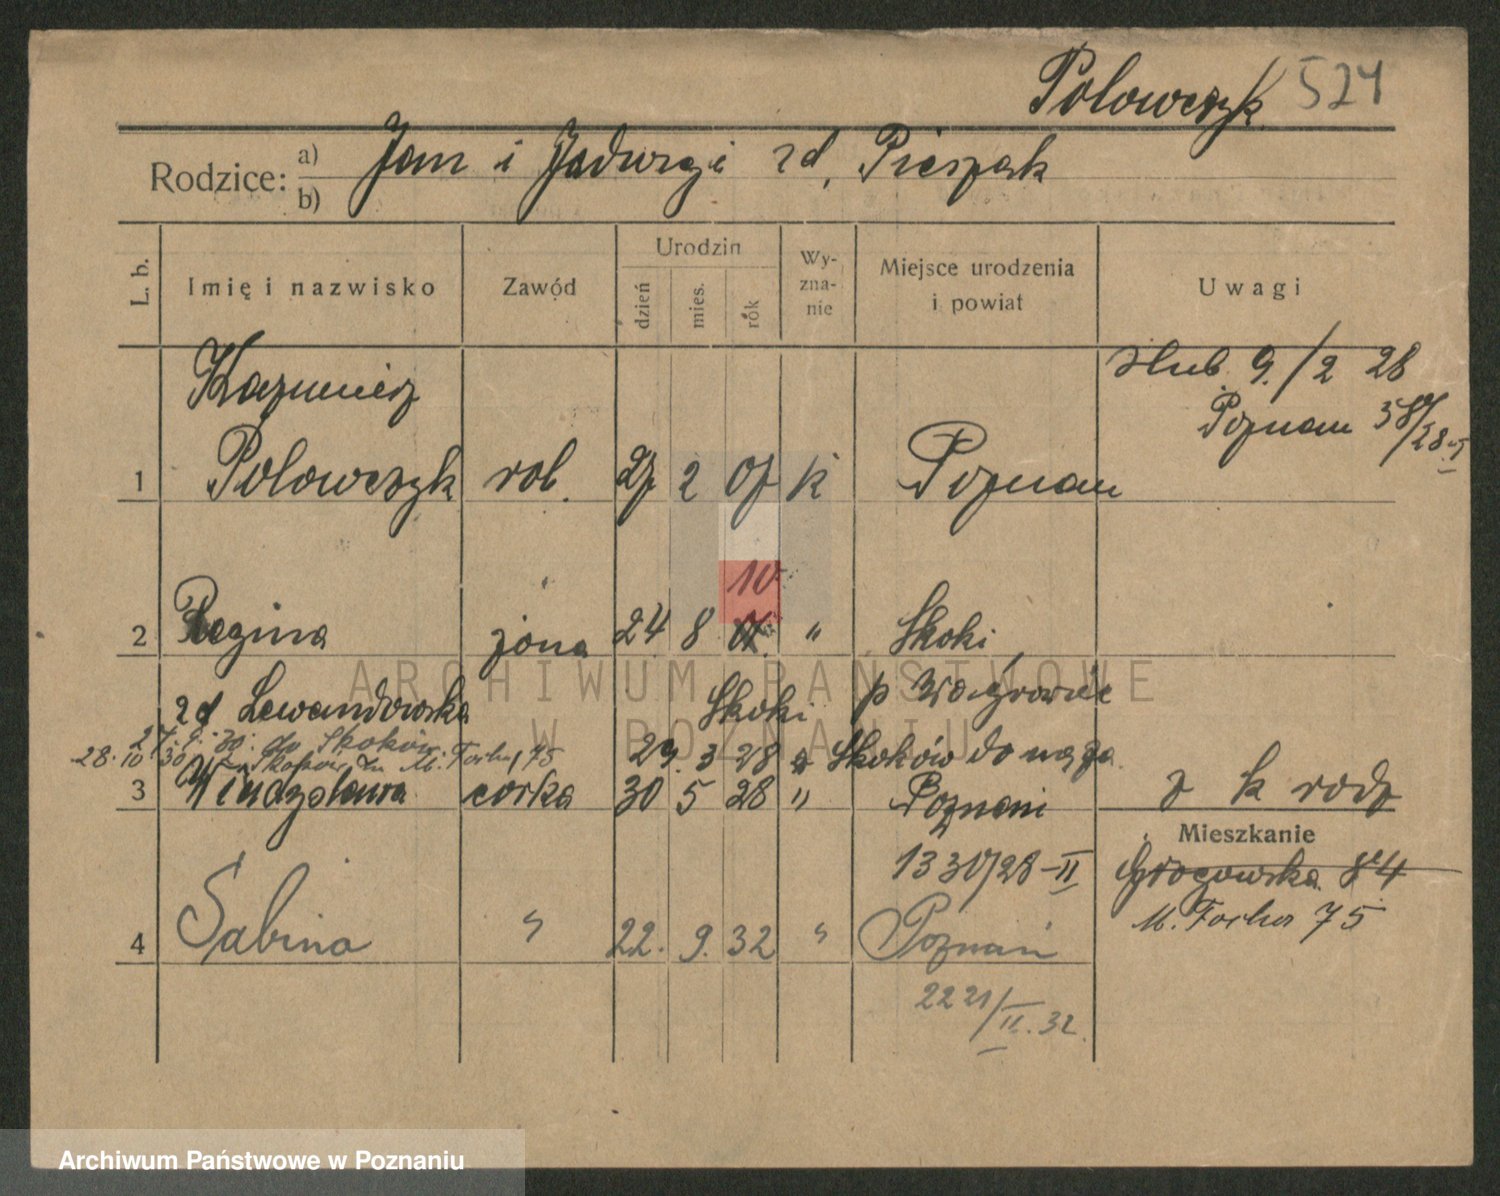 Polowczyk 524
Rodzice: a) b) Jan i Jadwigi zd. Pieszak
L. b. Imię i nazwisko Zawód Urodzin dzień mies. rok Wyznanie Miejsce urodzenia i powiat Uwagi
Kazimierz ślub 9./2 28
Poznan 587/28
1 Polowczyk rob. 27 2 07 k Poznan
10
2 Regina żona 24 8 11. " Skoki
zd Lewandowska Skoki p Wągrowiec
27.9.30. do Skoków 29. 3 28 z Skoków do męża
28.10.30 z Skoków M. Focha 75
3 Władzysława corka 30 5 28 " Poznani z k rodz
Mieszkanie
1330/28-II Grogowska 84
M. Focha 75
4 Sabina " 22. 9. 32 " Poznań
2221/II.32
ARCHIWUM PAŃSTWOWE
W POZNANIU
Archiwum Państwowe w Poznaniu